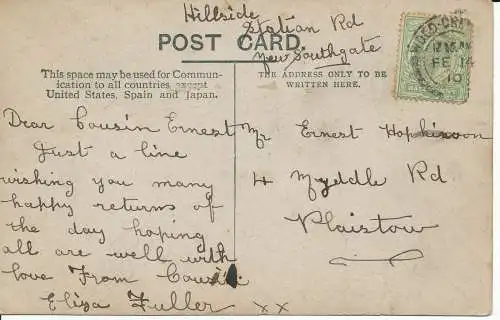 Hillside
Station Rd
New Southgate
POST CARD.
This space may be used for Commun-
ication to all countries except
United States, Spain and Japan.
THE ADDRESS ONLY TO BE
WRITTEN HERE.
Dear Cousin Ernest
Just a line
wishing you many
happy returns of
the day hoping
all are well with
love From Cousin
Eliza Fuller xx
Mr Ernest Hopkinson
4 Myddle Rd
Plaistow
12 15 AM
FE 14
10